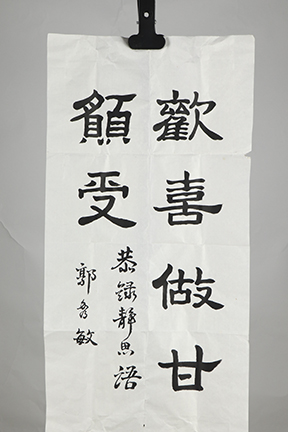 歡喜做甘
願受
恭錄靜思語
鄭秀敏